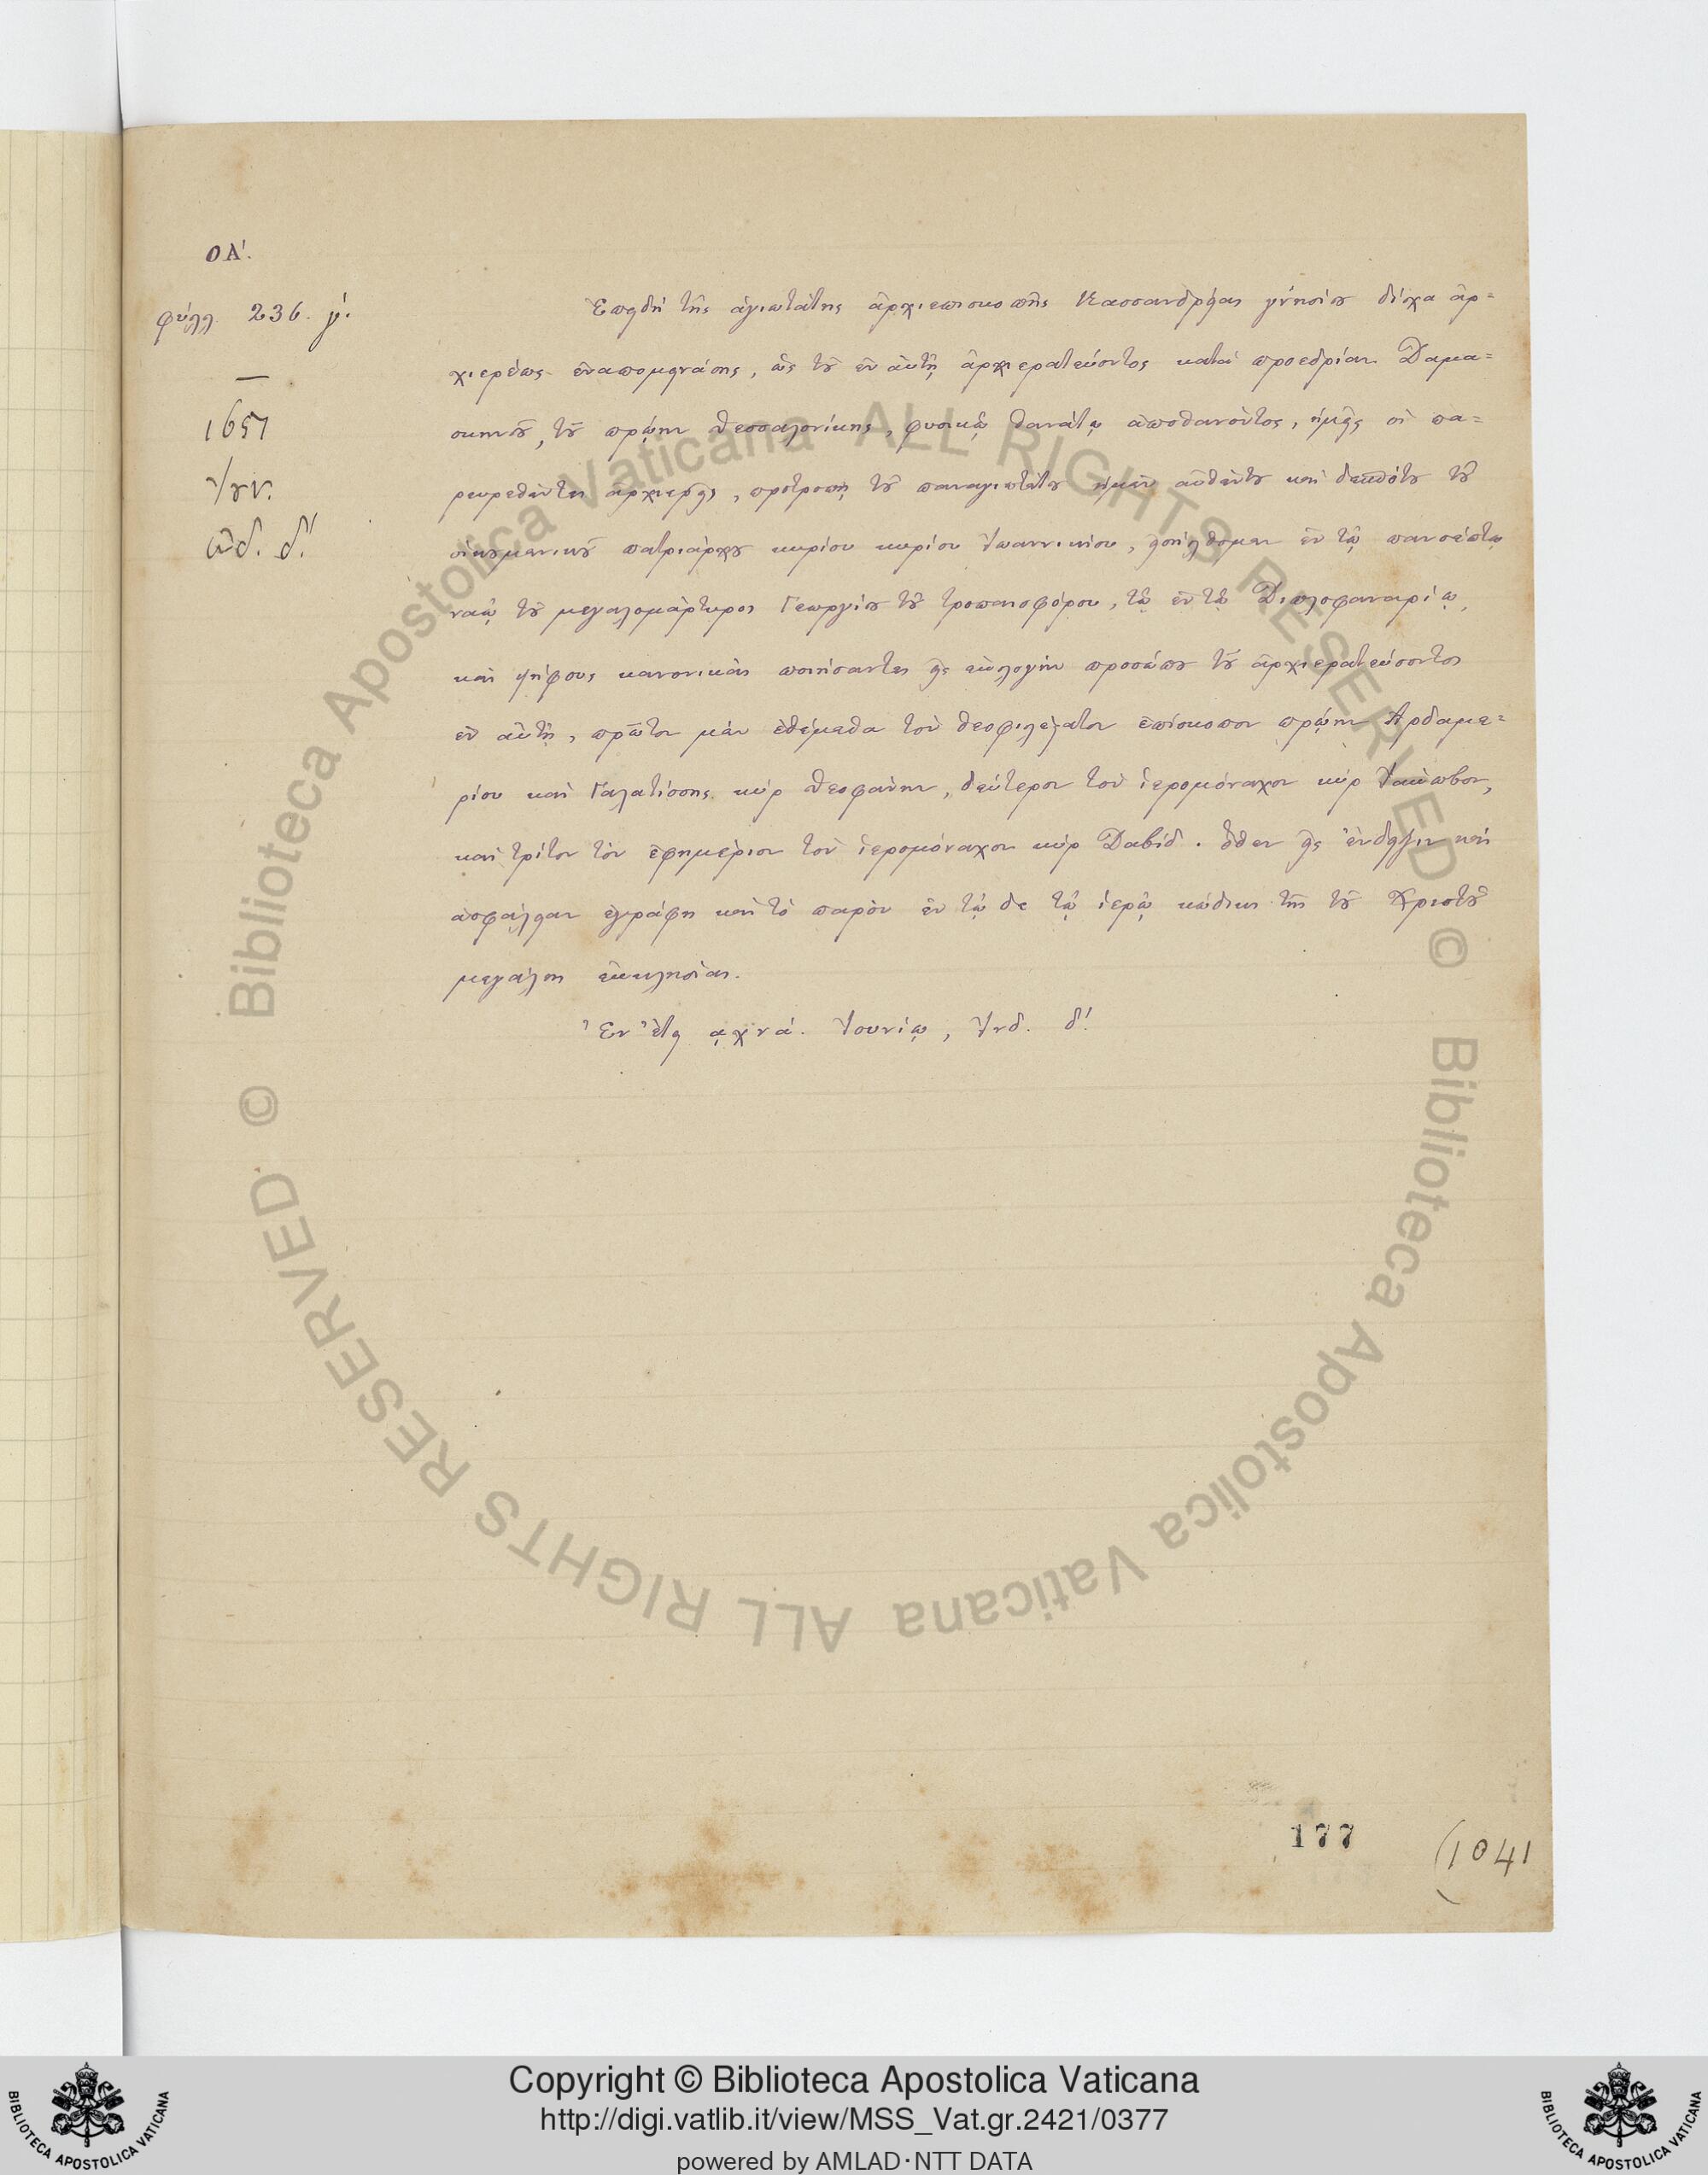 ΟΑ΄.
φύλλ. 236. γ΄.
1651
Ἰουν.
ἰνδ. δ΄.
Ἐπειδὴ τῆς ἁγιωτάτης ἀρχιεπισκοπῆς Κασσανδρείας γνησίου δίχα ἀρ=
χιερέως ἐναπομεινάσης, ὡς τοῦ ἐν αὐτῇ ἀρχιερατεύοντος κατὰ προεδρίαν Δαμα=
σκηνοῦ, τοῦ πρώην Θεσσαλονίκης, φυσικῷ θανάτῳ ἀποθανόντος, ἡμεῖς οἱ πα=
ρευρεθέντες ἀρχιερεῖς, προτροπῇ τοῦ παναγιωτάτου ἡμῶν αὐθέντου καὶ δεσπότου τοῦ
οἰκουμενικοῦ πατριάρχου κυρίου κυρίου Ἰωαννικίου, εἰσήλθομεν ἐν τῷ πανσέπτῳ
ναῷ τοῦ μεγαλομάρτυρος Γεωργίου τοῦ τροπαιοφόρου, τῷ ἐν τῷ Διπλοφαναρίῳ,
καὶ ψήφους κανονικὰς ποιήσαντες εἰς ἐκλογὴν προσώπου τοῦ ἀρχιερατεύσοντος
ἐν αὐτῇ, πρῶτον μὲν ἐθέμεθα τὸν θεοφιλέστατον ἐπίσκοπον πρώην Ἀρδαμε=
ρίου καὶ Γαλατίσσης κὺρ Θεοφάνην, δεύτερον τὸν ἱερομόναχον κὺρ Ἰακωβον,
καὶ τρίτον τὸν ἐφημέριον τὸν ἱερομόναχον κὺρ Δαβίδ. ὅθεν εἰς ἔνδειξιν καὶ
ἀσφάλειαν ἐγράφη καὶ τὸ παρὸν ἐν τῷδε τῷ ἱερῷ κώδικι τῆς τοῦ Χριστοῦ
μεγάλης ἐκκλησίας.
Ἐν ἔτει ͵αχνά. Ἰουνίῳ, Ἰνδ. δ΄.
177
(1041
Copyright © Biblioteca Apostolica Vaticana
http://digi.vatlib.it/view/MSS_Vat.gr.2421/0377
powered by AMLAD·NTT DATA
BIBLIOTECA APOSTOLICA VATICANA
BIBLIOTECA APOSTOLICA VATICANA
© Biblioteca Apostolica Vaticana ALL RIGHTS RESERVED
© Biblioteca Apostolica Vaticana ALL RIGHTS RESERVED